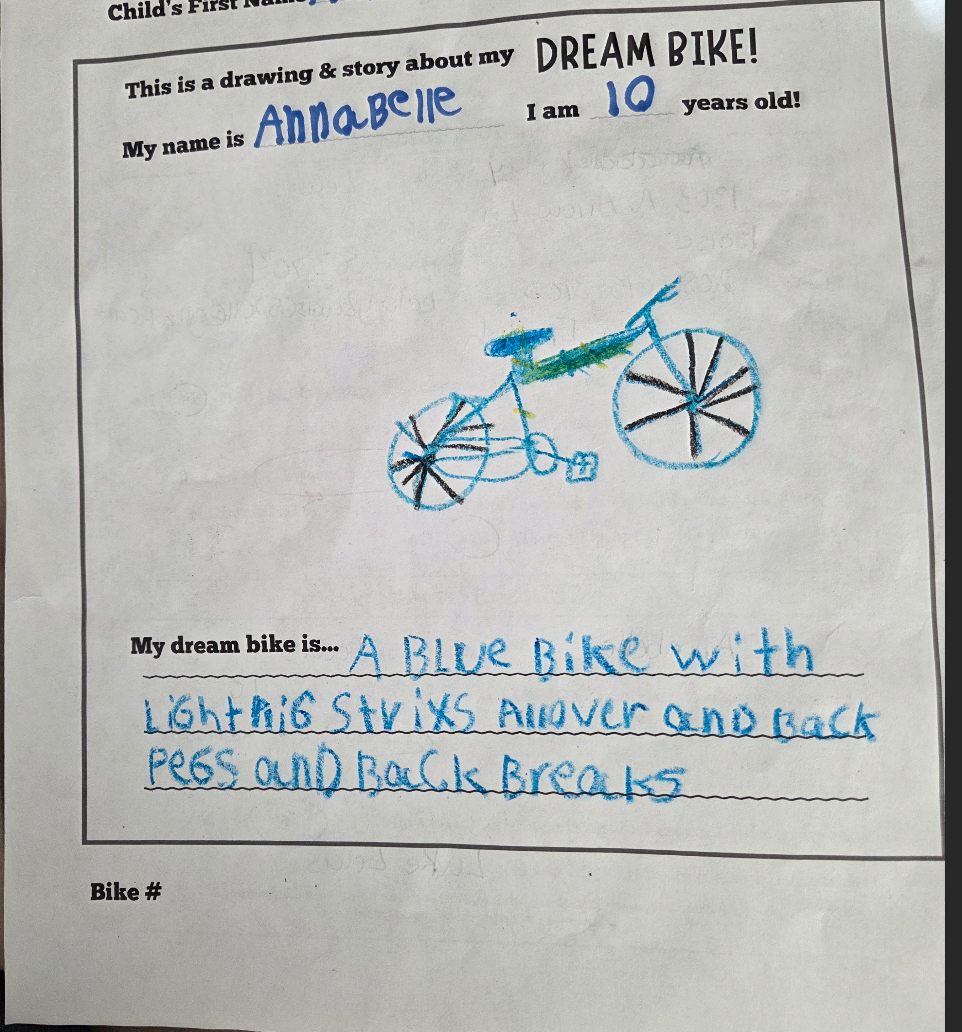 Child's First Name
This is a drawing & story about my DREAM BIKE!
My name is AnnaBelle I am 10 years old!
My dream bike is... A BLUe Bike with
LiGhtniG Strixs Allover and Back
PeGS anD BaCk Breaks
Bike #